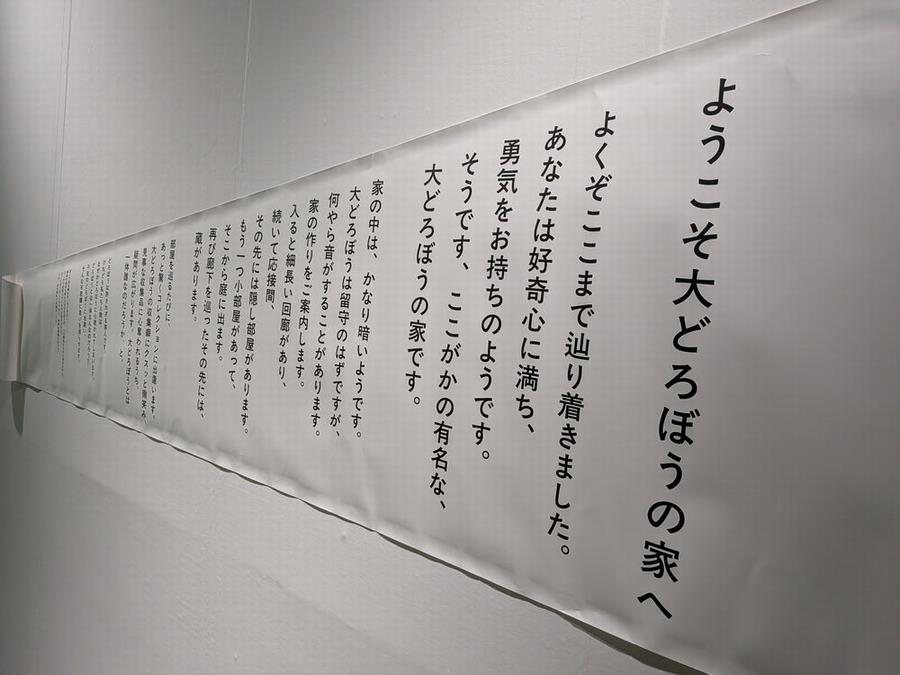 ようこそ大どろぼうの家へ
よくぞここまで辿り着きました。
あなたは好奇心に満ち、
勇気をお持ちのようです。
そうです、ここがかの有名な、
大どろぼうの家です。
家の中は、かなり暗いようです。
大どろぼうは留守のはずですが、
何やら音がすることがあります。
家の作りをご案内します。
入ると細長い回廊があり、
続いて応接間、
その先には隠し部屋があります。
もう一つ小部屋があって、
そこから庭に出ます。
再び廊下を巡ったその先には、
蔵があります。
部屋を巡るたびに、
あっと驚くコレクションに出逢います。
大どろぼうの収集癖にクスッと微笑み、
見事な収集品に心奪われるうち、
疑問が広がります。大どろぼうとは
一体誰なのだろうか、と。